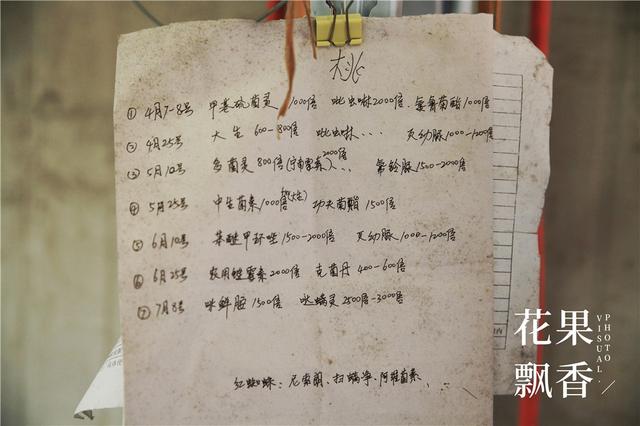 桃
① 4月7-8号 甲基硫菌灵 1000倍 吡虫啉2000倍. 氯氰菊酯1000倍
② 4月25号 大生 600-800倍 吡虫啉... 灭幼脲1000-1200倍
③ 5月10号 多菌灵 800倍 2000倍 ... 杀铃脲1500-2000倍
④ 5月25号 中生菌素1000倍 功夫菊酯 1500倍
⑤ 6月10号 苯醚甲环唑1500-2000倍 灭幼脲1000-1200倍
⑥ 6月25号 农用链霉素2000倍 克菌丹 400-600倍
⑦ 7月8号 咪鲜胺1500倍 哒螨灵2500倍-3000倍
红蜘蛛: 尼索朗、扫螨净、阿维菌素、
花果
飘香
VISUAL.
PHOTO